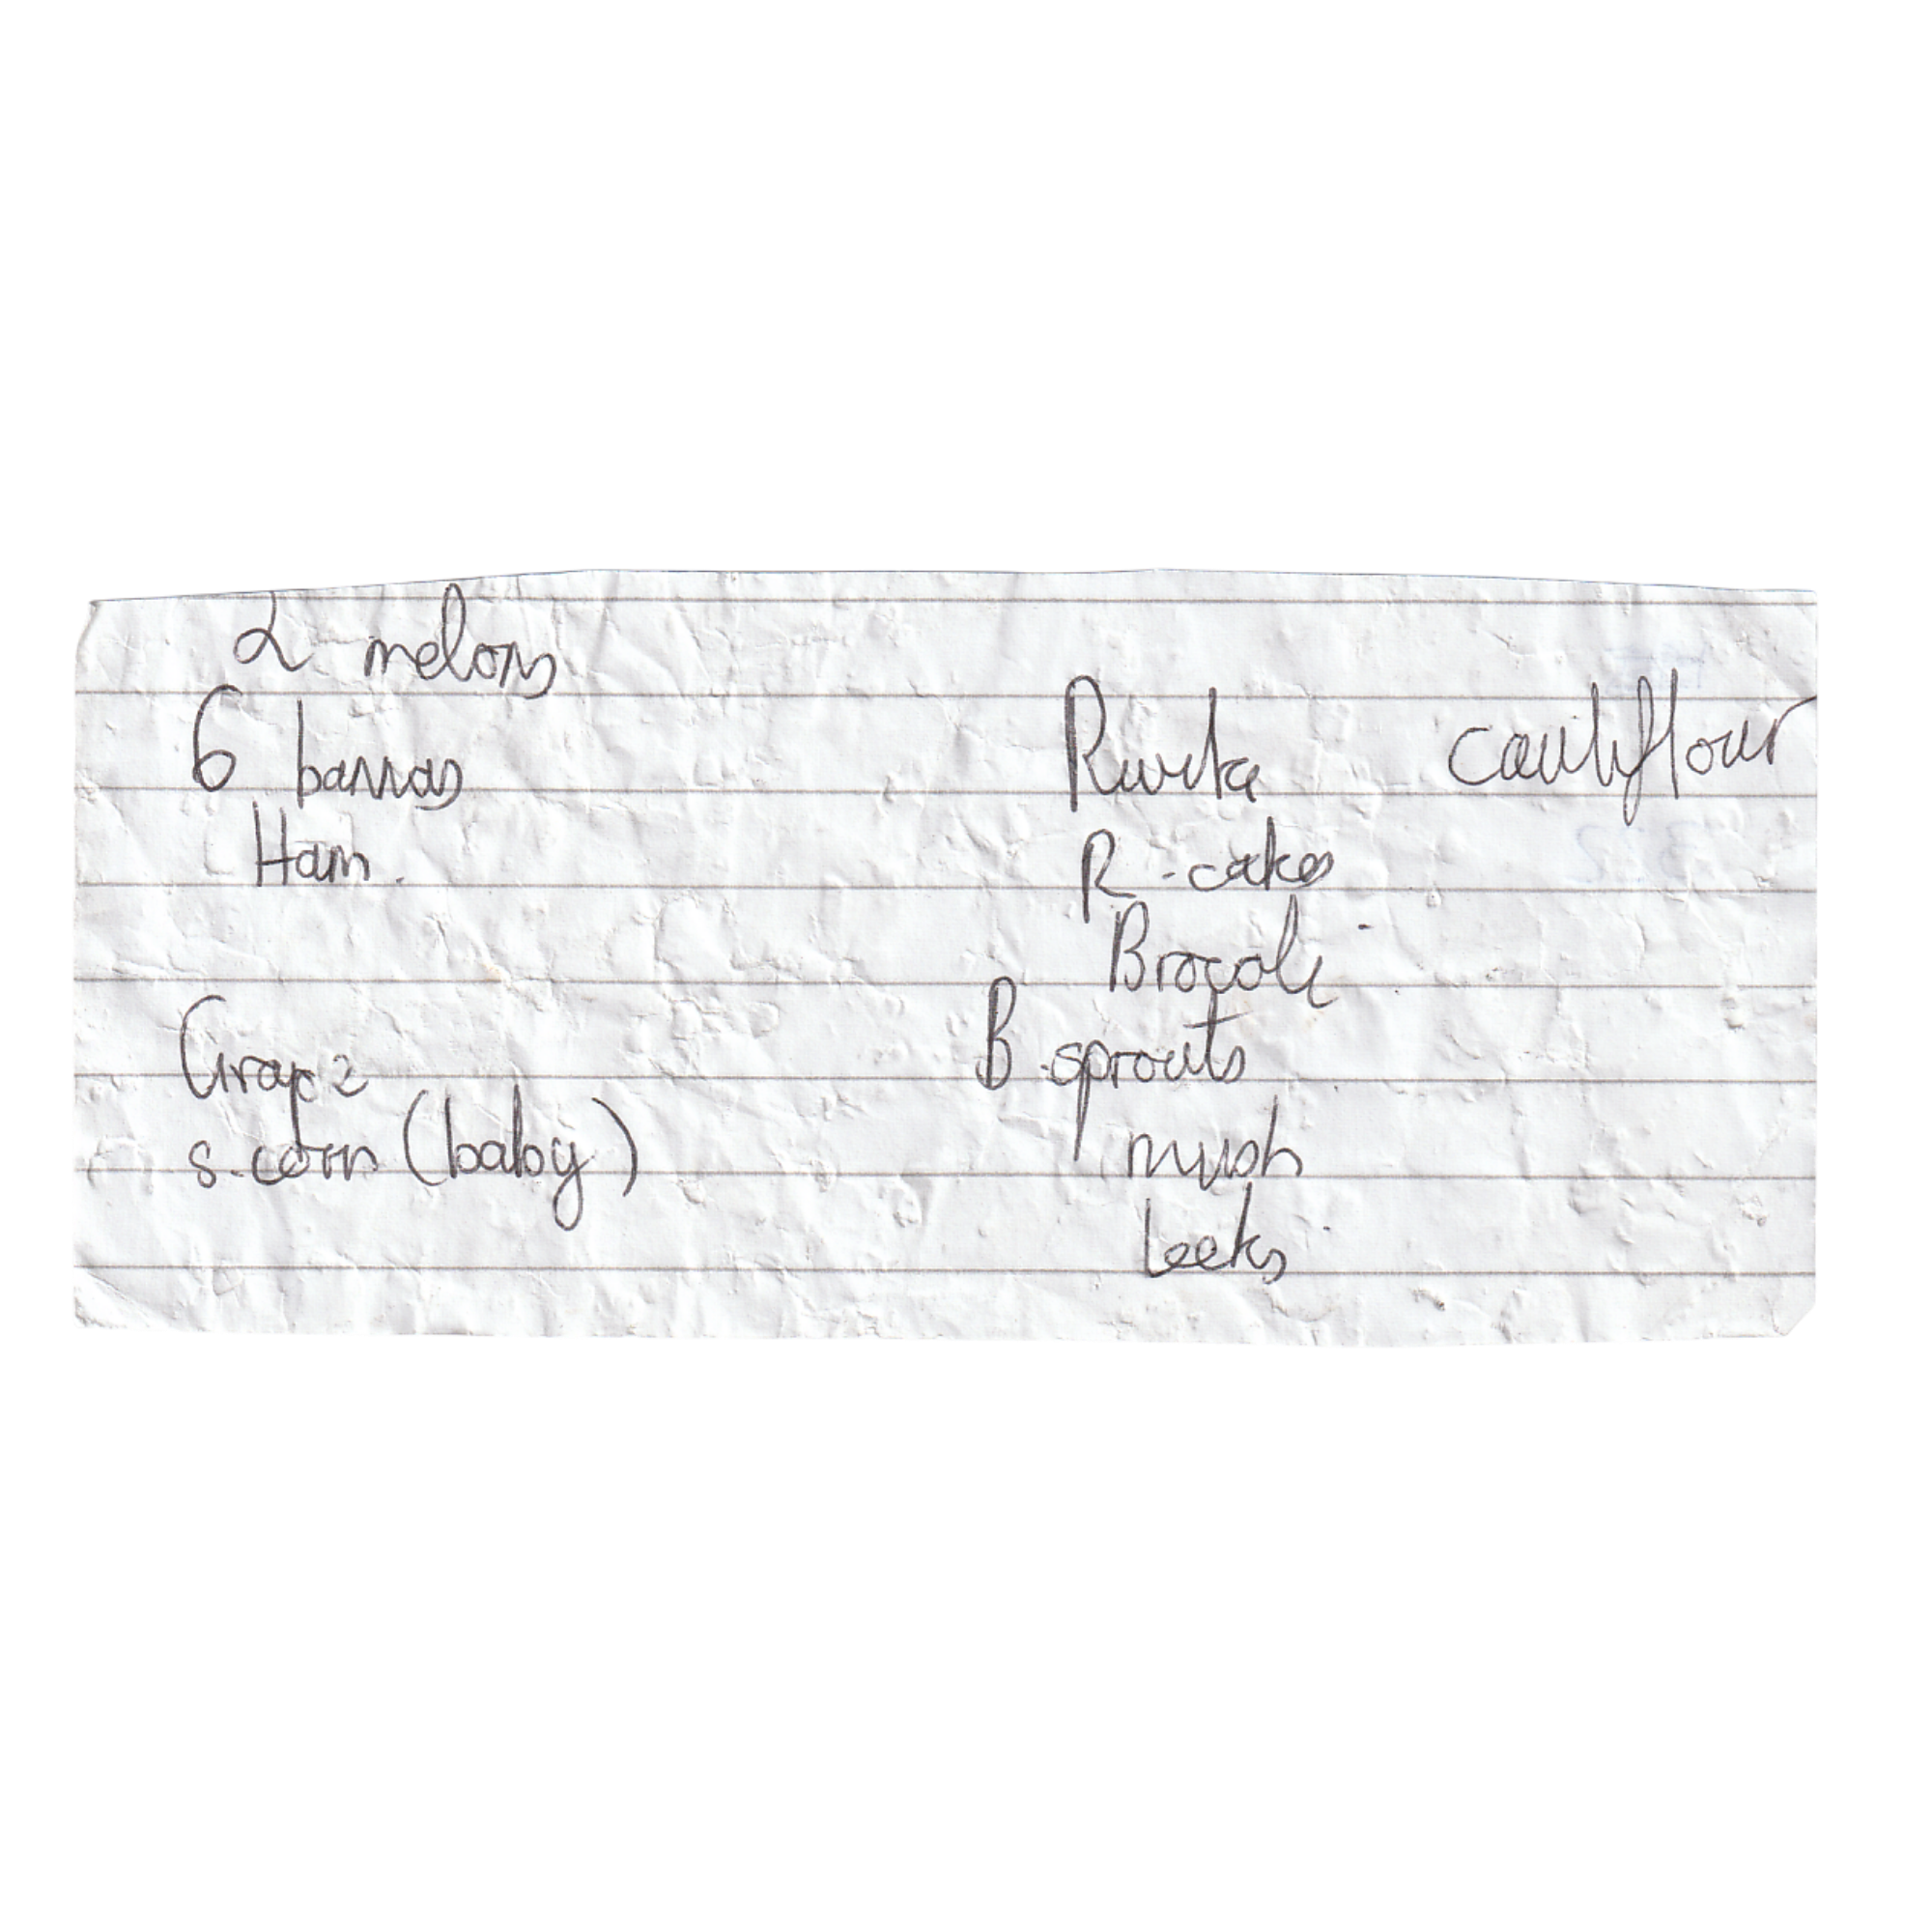 2 melons
6 bananas
Ham.
Grape
s.corn (baby)
R-cakes
Brocoli
B.sprouts
mush
Leeks
cauliflour